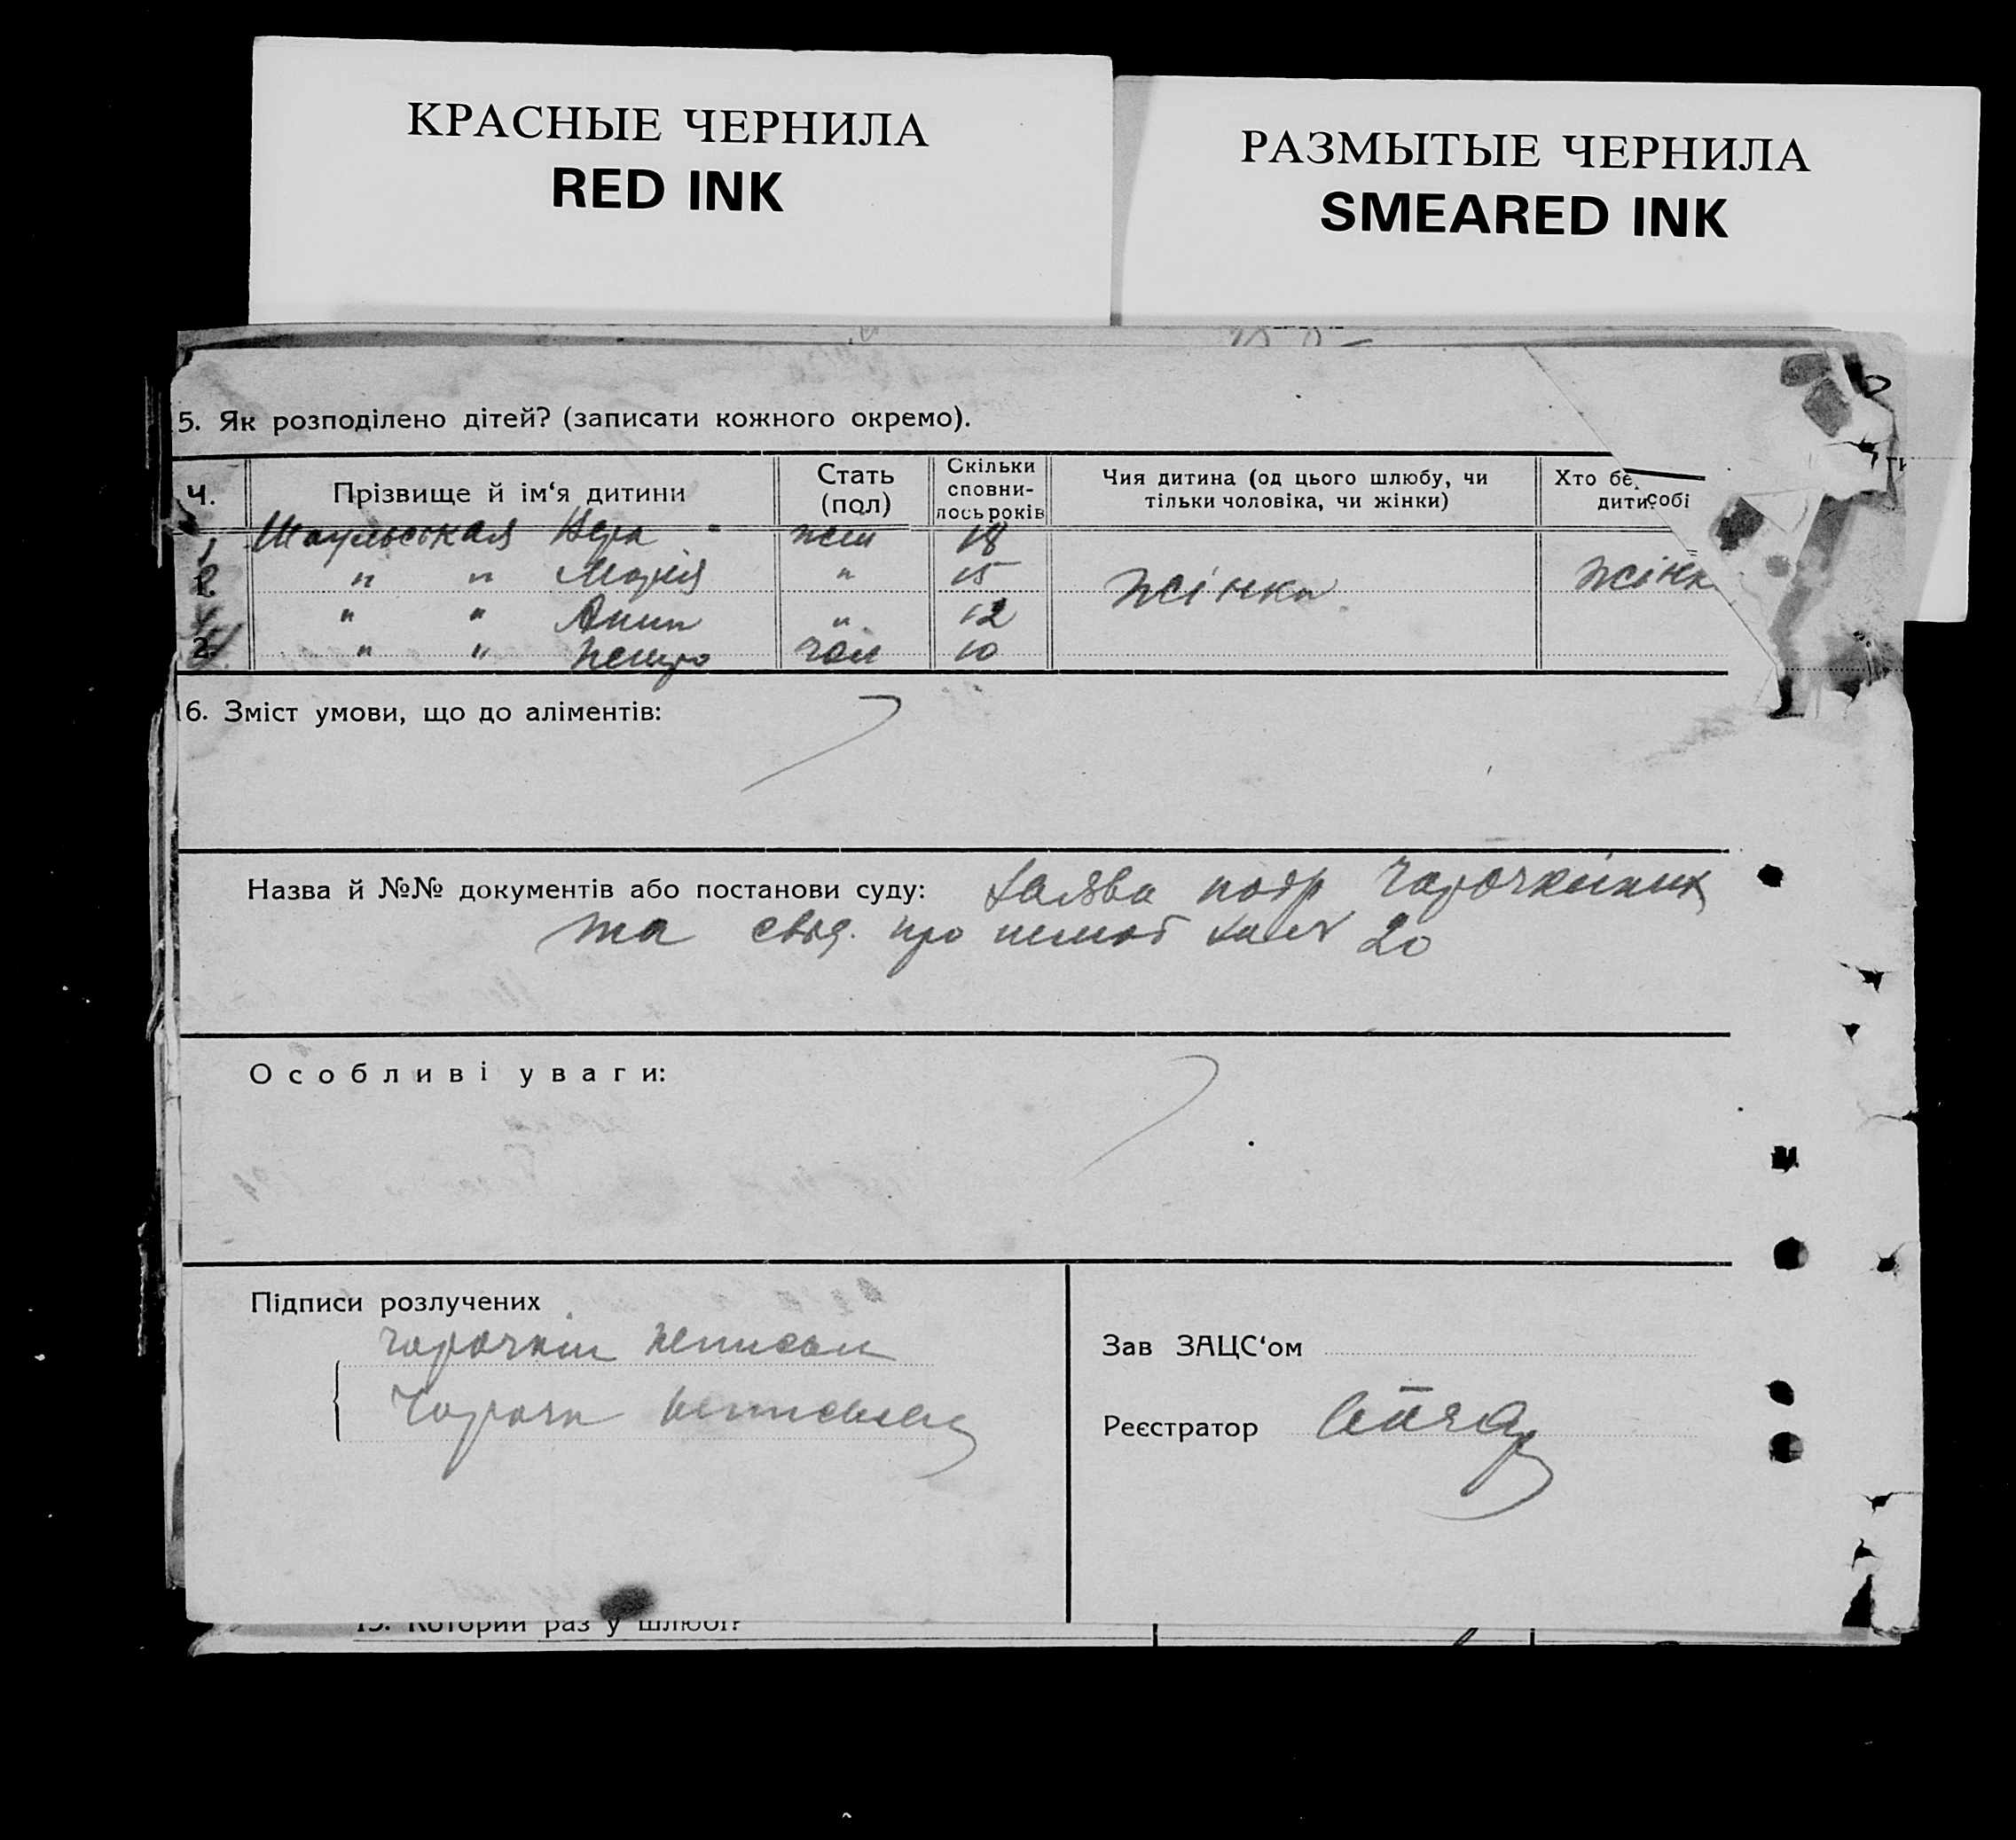 КРАСНЫЕ ЧЕРНИЛА
RED INK
РАЗМЫТЫЕ ЧЕРНИЛА
SMEARED INK
5. Як розподілено дітей? (записати кожного окремо).
Ч.
Прізвище й ім‘я дитини
Стать (пол)
Скільки сповни-лось років
Чия дитина (од цього шлюбу, чи тільки чоловіка, чи жінки)
Хто бе дити собі
Вера 18
2. " " Мария " 15 жінка жінк
" " " 12
" " Петро чол 10
1.
2.
16. Зміст умови, що до аліментів:
Назва й №№ документів або постанови суду: заява подр
та свид. про 20
Особливі уваги:
Підписи розлучених
Зав ЗАЦС‘ом
Реєстратор
13. Которий раз у шлюбі?